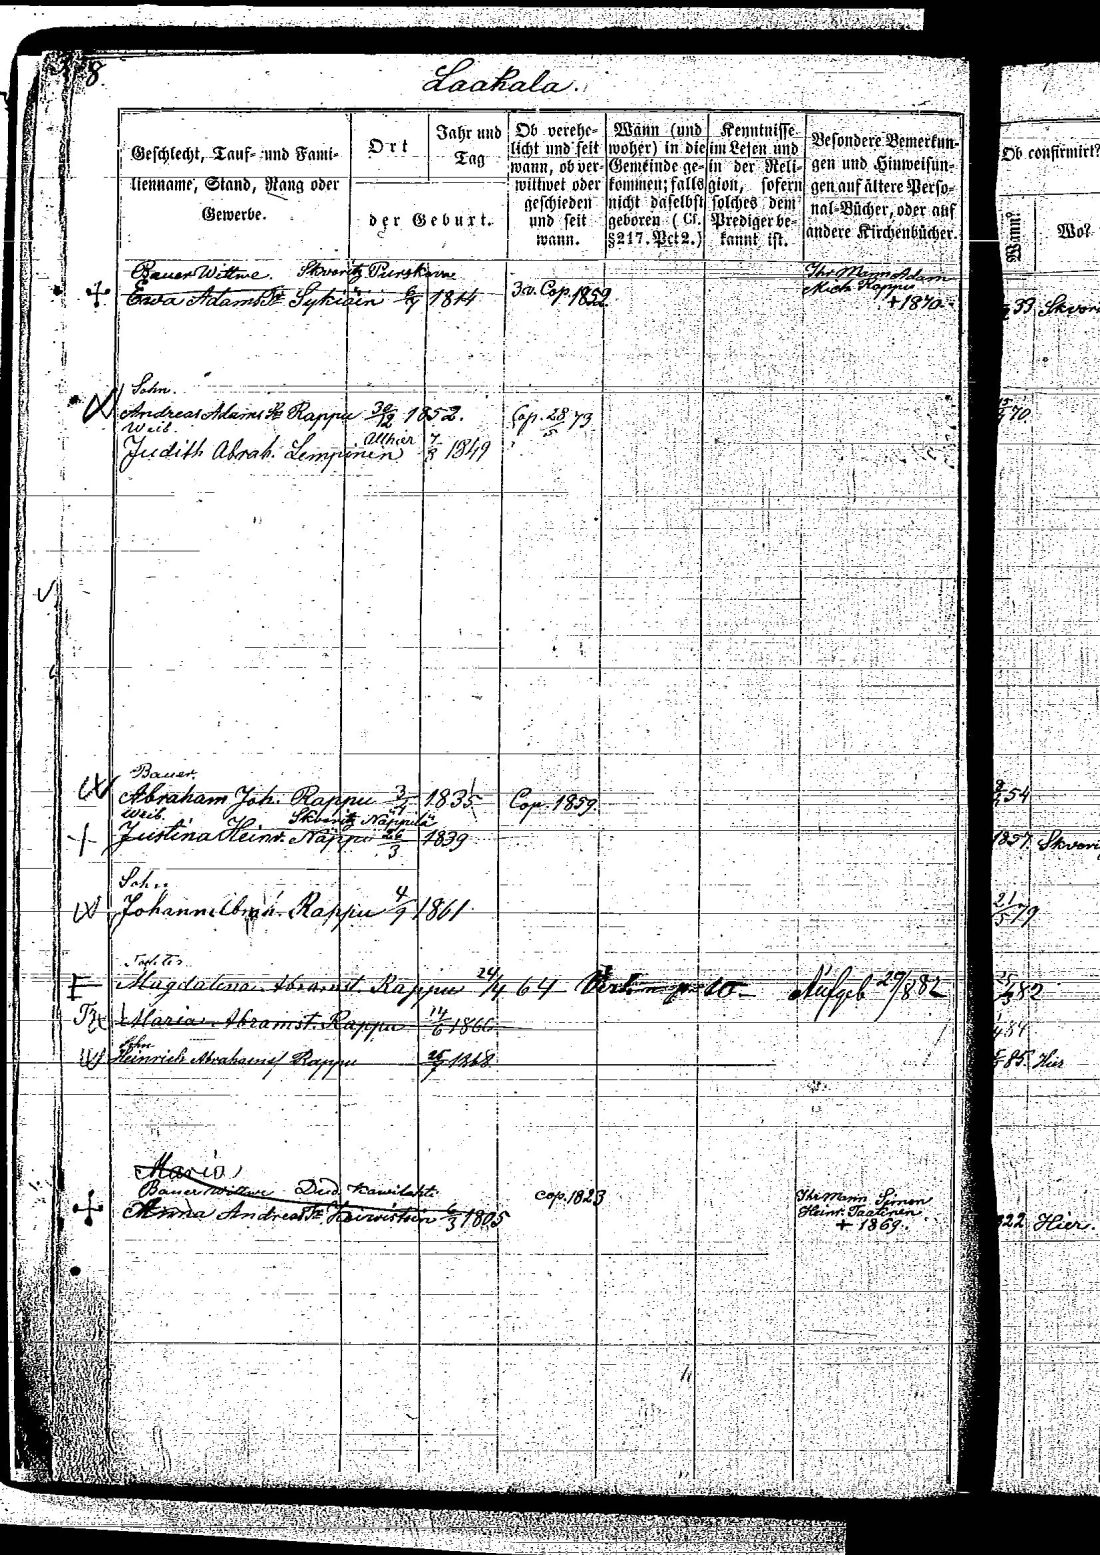 8.
Laakala.
Geschlecht, Tauf- und Fami-
lienname, Stand, Rang oder
Gewerbe.
Ort
Jahr und
Tag
der Geburt.
Ob verehe-
licht und seit
wann, ob ver-
wittwet oder
geschieden
und seit
wann.
Wann (und
woher) in die
Gemeinde ge-
kommen; falls
nicht daselbst
geboren (Cf.
§ 217. Pct 2.)
Kenntnisse
im Lesen und
in der Reli-
gion, sofern
solches dem
Prediger be-
kannt ist.
Besondere Bemerkun-
gen und Hinweisun-
gen auf ältere Perso-
nal-Bücher, oder auf
andere Kirchenbücher.
Ob confirmirt?
Wann?
Wo?
Bauer Wittwe. Skworitz Purskowa
Ewa Adams Sykiäin 1814
Cop. 1859
Ihr Mann Adam
Mich Rappu
+ 1870.
33 Skwori
Sohn.
Andreas Adams Rappu 1852. Cop. 28/5 73
70.
Weib.
Judith Abrah. Lempinen Allhier 7/3 1849
Bauer.
Abraham Joh. Rappu 1835 Cop. 1859.
54
Weib. Skworitz Näppilä
Justina Heinr. Näppi 26/3 1839
1857. Skwori
Sohn.
Johann Abrah. Rappu 4/9 1861.
21/5 79
Magdalena Abramst. Rappu 24/4 64
Aufgeb 29/8 82
82
Maria Abramst. Rappu 14/6 1866
84
Sohn
Heinrich Abrahams Rappu 1868.
85. Hier
Maria
Bauer Wittwe Dud. Kawilaht.
Anna Andreas 1805
cop. 1823
Ihr Mann Simon
Heinr. Taatinen
+ 1869.
22 Hier.